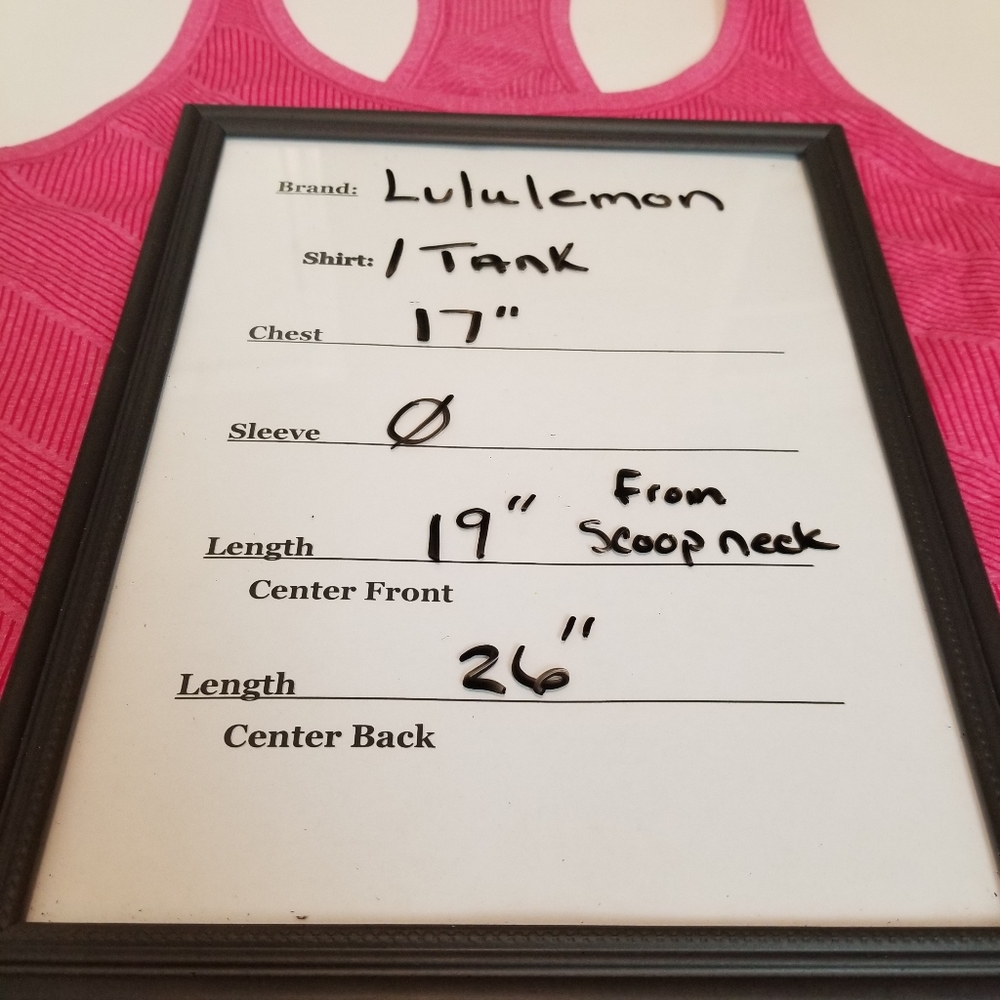 Brand: Lululemon
Shirt: / Tank
Chest 17"
Sleeve Ø
Length 19" From Scoop neck
Center Front
Length 26"
Center Back